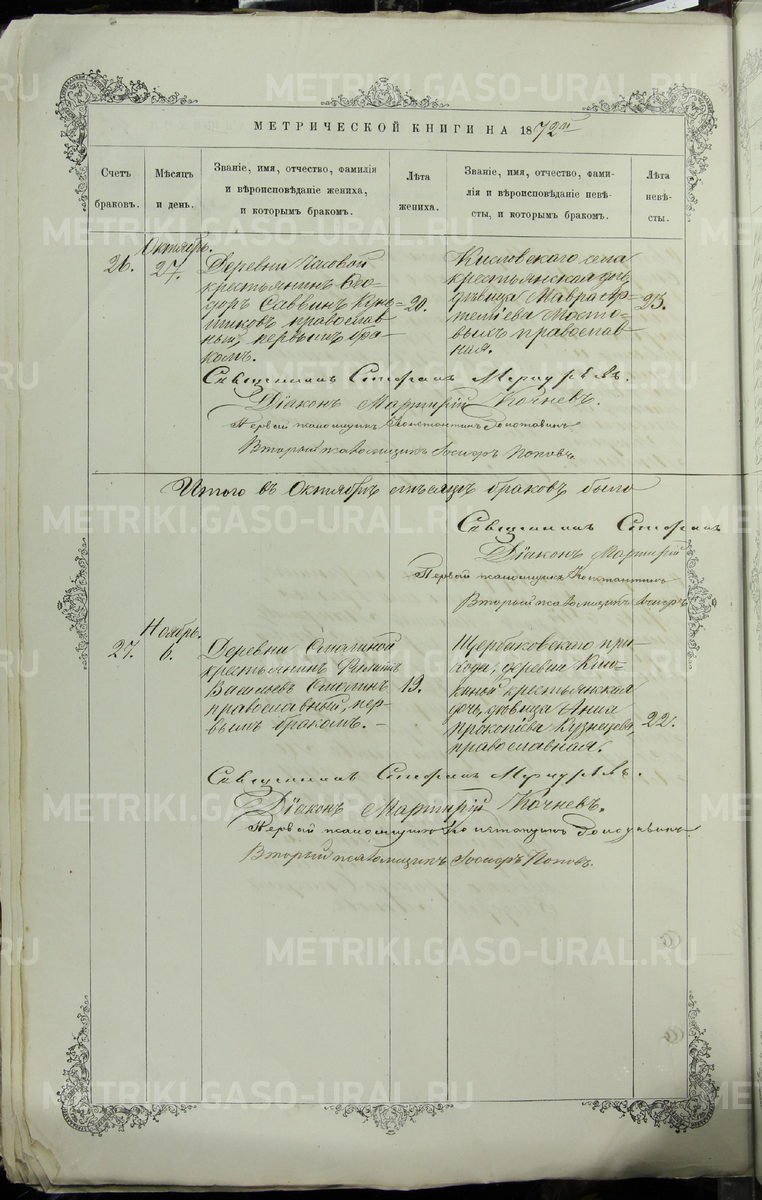 МЕТРИЧЕСКОЙ КНИГИ НА 1872й
Счетъ браковъ.
Мѣсяцъ и день.
Званіе, имя, отчество, фамилія
и вѣроисповѣданіе жениха,
и которымъ бракомъ.
Лѣта жениха.
Званіе, имя, отчество, фами-
лія и вѣроисповѣданіе невѣ-
сты, и которымъ бракомъ.
Лѣта невѣ-
сты.
26.
Октябрь.
27.
Деревни
крестьянинъ Ѳео-
доръ Саввинъ
православ-
ный, первымъ бра-
комъ.
20.
Кисловскаго села
крестьянская дочь
дѣвица Мавра Ар-
темьева Мосто-
выхъ православ-
ная.
23.
Священникъ Стефанъ Меркурьевъ.
Діаконъ Мартирій Кочневъ.
Первый псаломщикъ Константинъ
Второй псаломщикъ Іосифъ Поповъ.
Итого въ Октябрѣ мѣсяцѣ браковъ было
Священникъ Стефанъ
Діаконъ Мартирій
Первый псаломщикъ Константинъ
Второй псаломщикъ Іосифъ
27.
Ноябрь.
6.
Деревни
крестьянинъ Филиппъ
Васильевъ
православный, пер-
вымъ бракомъ.
19.
Щербаковскаго при-
хода, деревни
крестьянская
дочь, дѣвица Анна
Прокопьева Кузнецова,
православная.
22.
Священникъ Стефанъ Меркурьевъ.
Діаконъ Мартирій Кочневъ.
Первый псаломщикъ Константинъ
Второй псаломщикъ Іосифъ Поповъ.
METRIKI.GASO-URAL.RU